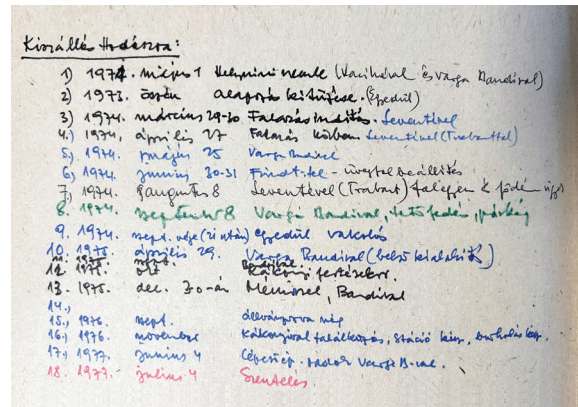 Kiszállás Hodászra:
1) 1974. május 1 Helyszíni szemle (Vacihával és Varga Bandival)
2) 1973. őszén alapozás kitűzése. (Egyedül)
3) 1974. március 29-30 Falazás indítás. Leventével
4.) 1974. április 27 Falazás közben Leventével (Trabanttal)
5.) 1974. május 25 Varga Bandival
6.) 1974. junius 30-31 - üvegtel beállítás
7. 1974. augusztus 8 Leventével (Trabant) falegyen & födém
8. 1974. szeptember 8 Varga Bandival, tetőfedés, párkány
9. 1974. szept. vége (21 után) egyedül vakolás
10. 1975. április 29. Varga Bandival (belső kialakítás)
11. 1975 szept. Bandival
12 1975. okt Kákonyi festésekor.
13. 1975. dec. 30-án Bandival
14.,
15., 1976. szept. állványozva még
16., 1976. november Kákonyival találkozás, stáció kész, burkolás kész.
17., 1977. junius 4 Lépcső, padok Varga B-val.
18. 1977. julius 4 Szentelés.